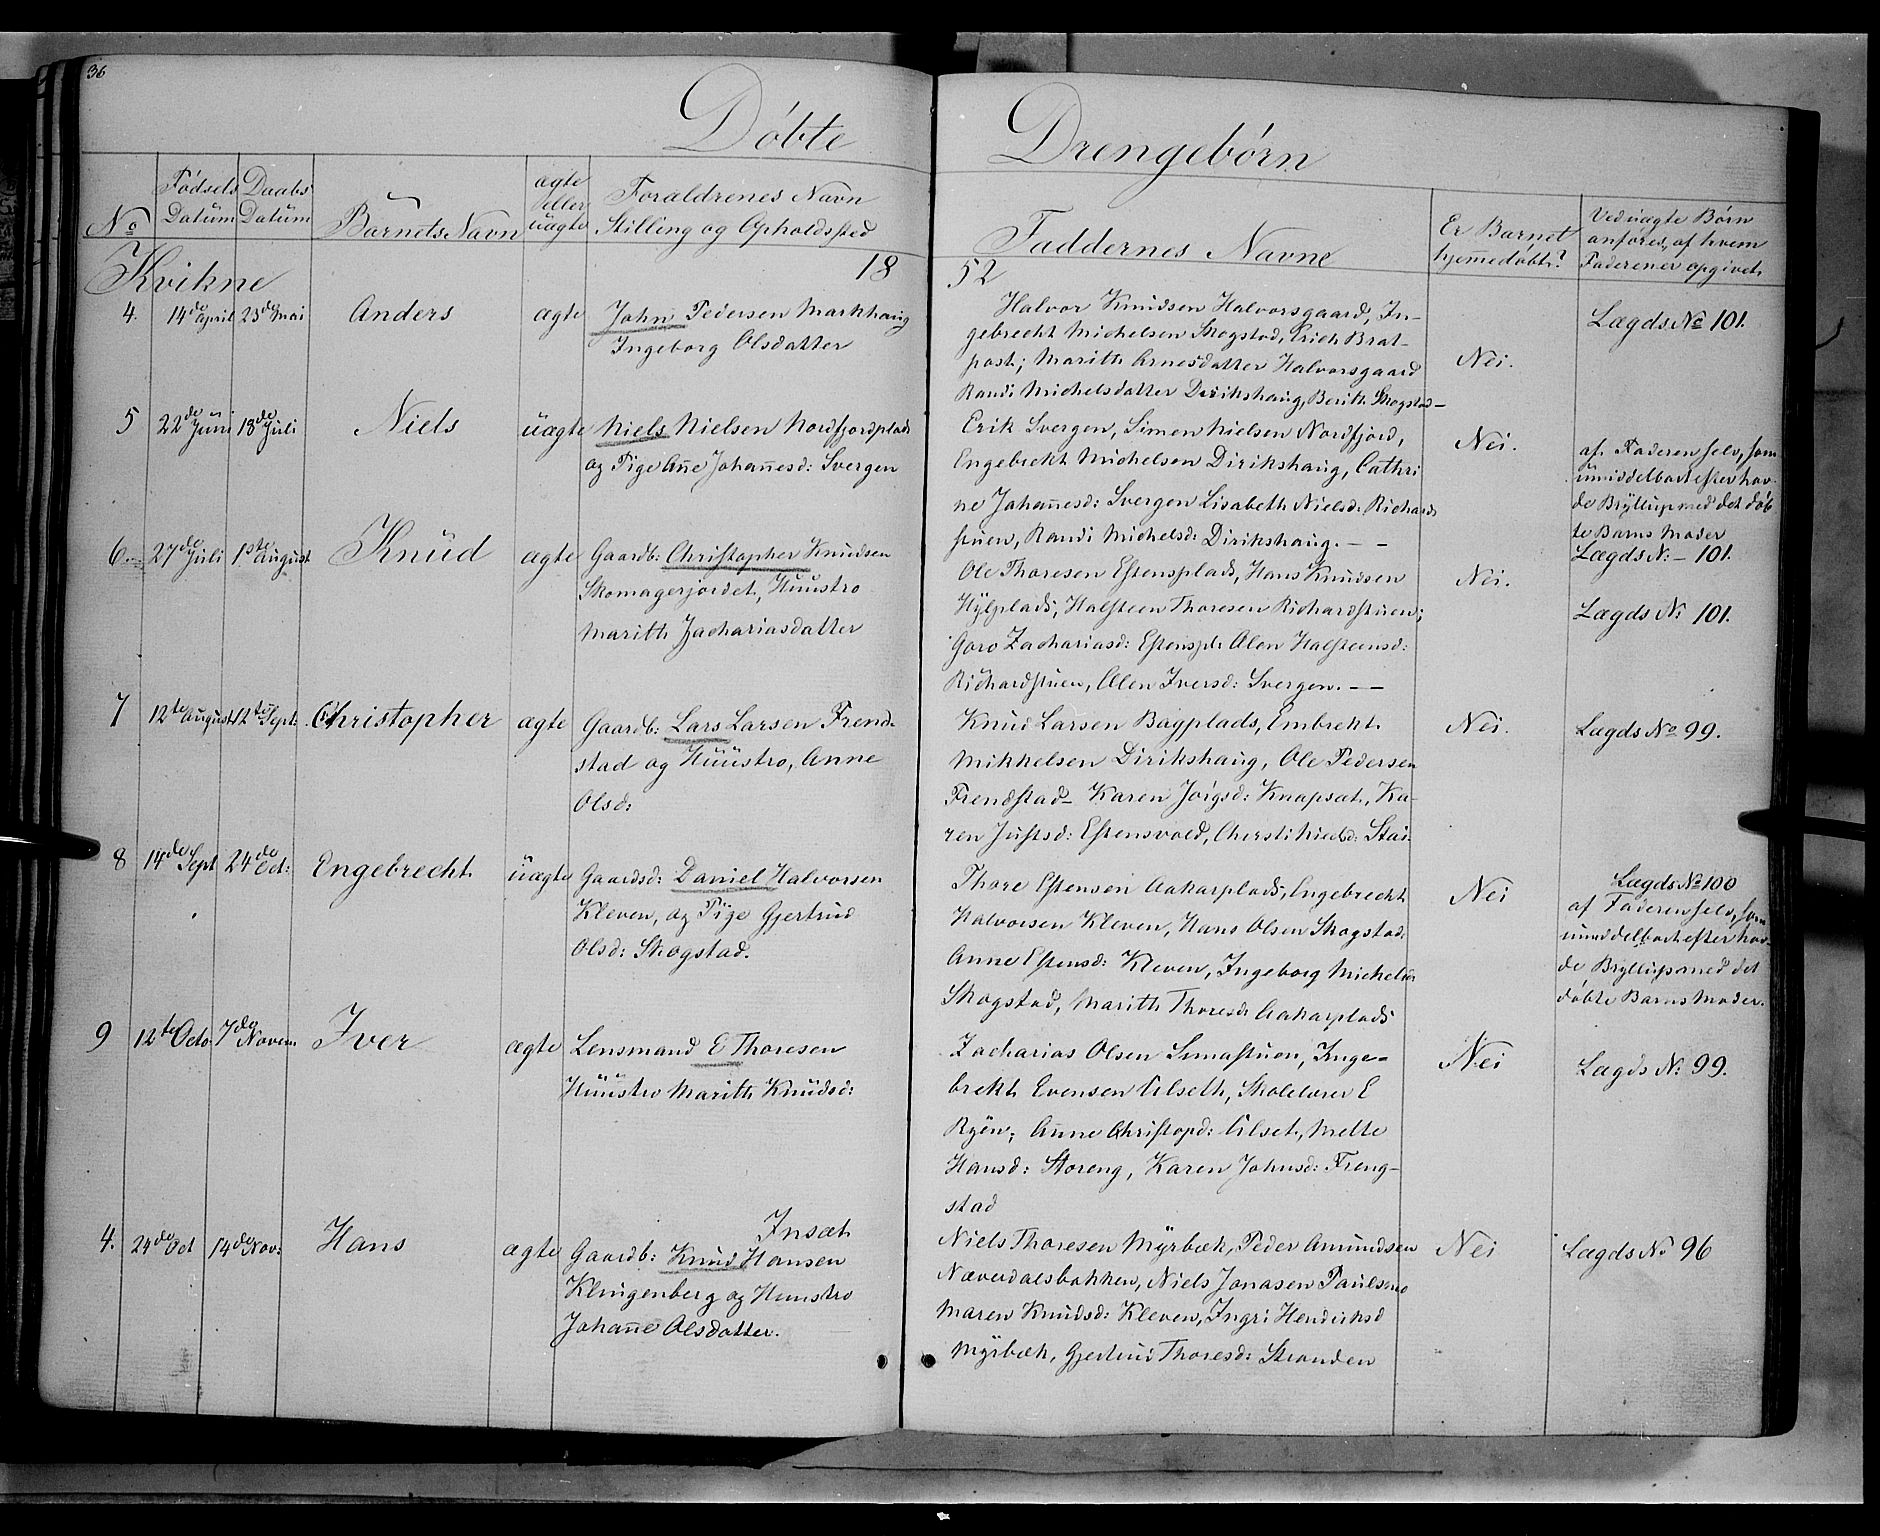 36
Döbte
Drengebörn
No
Födsels Datum
Daabs Datum
Barnets Navn
ægte eller uægte
Foraldrenes Navn
Stilling og Opholdssted
Faddernes Navne
Er Barnet hjemmedöbt?
Ved uægte Börn
anföres, af hvem
Faderen er opgivet
Kvikne
18
52
4. 14de April 23de Mai Anders ægte
John Pedersen Markhaug
Ingeborg Olsdatter
Halvor Knudsen Halvorsgaard, In-
gebrecht Michelsen Skogstad, Erich Brat-
post; Marith Arnesdatter Halvorsgaard
Randi Michelsdatter Dirikshaug, Berith Skogstad
Nei.
Lægds No 101.
5 22de Juni 18de Juli Niels uægte
Niels Nielsen Nordfjordplads
og Pige Añe Johañesd: Svergen
Erik Svergen, Simen Nielsen Nordfjord,
Engebrekt Michelsen Dirikshaug, Cathri
ne Johañesd: Svergen Lisabeth Nielsd: Richard
stuen, Randi Michelsd: Dirikshaug. - -
Nei.
af Faderen selv, som
umiddelbart efter hav-
de Bryllup med det döb
te Barns Moder
Lægds N: - 101.
6. 27de Juli 1ste August Knud ægte
Gaardb: Christopher Knudsen
Skomagerjordet, Huustro
Marith Zachariasdatter
Ole Thoresen Estensplads, Hans Knudsen
Hylplads, Halsteen Thoresen Richardstuen;
Goro Zachariasd: Estenspl: Olen Halsteensd:
Richardstuen, Olen Iversd: Svergen. -
Nei.
Lægds N: 101.
7 12te August 12te Sept: Christopher ægte
Gaardb: Lars Larsen Frend-
stad og Huustro, Anne
Olsd:
Knud Larsen Bagplads, Embrekt
Mikkelsen Dirikshaug, Ole Pedersen
Frendstad - Karen Jörgsd: Knapsæt, Ka-
ren Justsd: Estensvold, Chersti Nielsd: Stai-
Nei.
Lægds No 99.
8 14de Sept 24de Oct: Engebrecht uægte
Gaardsd: Daniel Halvorsen
Kleven, og Pige Gjertrud
Olsd: Skogstad.
Thore Estensen Aakarplads, Engebrecht
Halvorsen Kleven, Hans Olsen Skogstad.
Anne Estensd: Kleven, Ingeborg Michelsd
Skogstad, Marith Thoresd: Aakarplads
Nei
Lægds No 100
af Faderen selv, som
umiddelbart efter hav-
de Bryllup med det
döbte Barns Moder.
9 12te Octo 7de Novem Iver ægte
Lensmand E Thoresen
Huustro Marith Knudsd:
Zacharias Olsen Simastuen, Inge-
brekt Evensen Vilseth, Skolelærer E
Ryen; Anne Christopd: Vilset, Mette
Hansd: Storeng, Karen Johnsd: Freng-
stad
Nei
Lægds N: 99.
4. 24de Oct 14de Nov: Hans ægte
Insæt
Gaardb: Knud Hansen
Klingenberg og Huustro
Johañe Olsdatter.
Niels Thoresen Myrbæk, Peder Amundsen
Næverdalsbakken, Niels Jonasen Paulsmo
Maren Knudsd: Kleven, Ingri Hendriksd
Myrbæk, Gjertrud Thoresd: Stranden
Nei
Lægds No 96